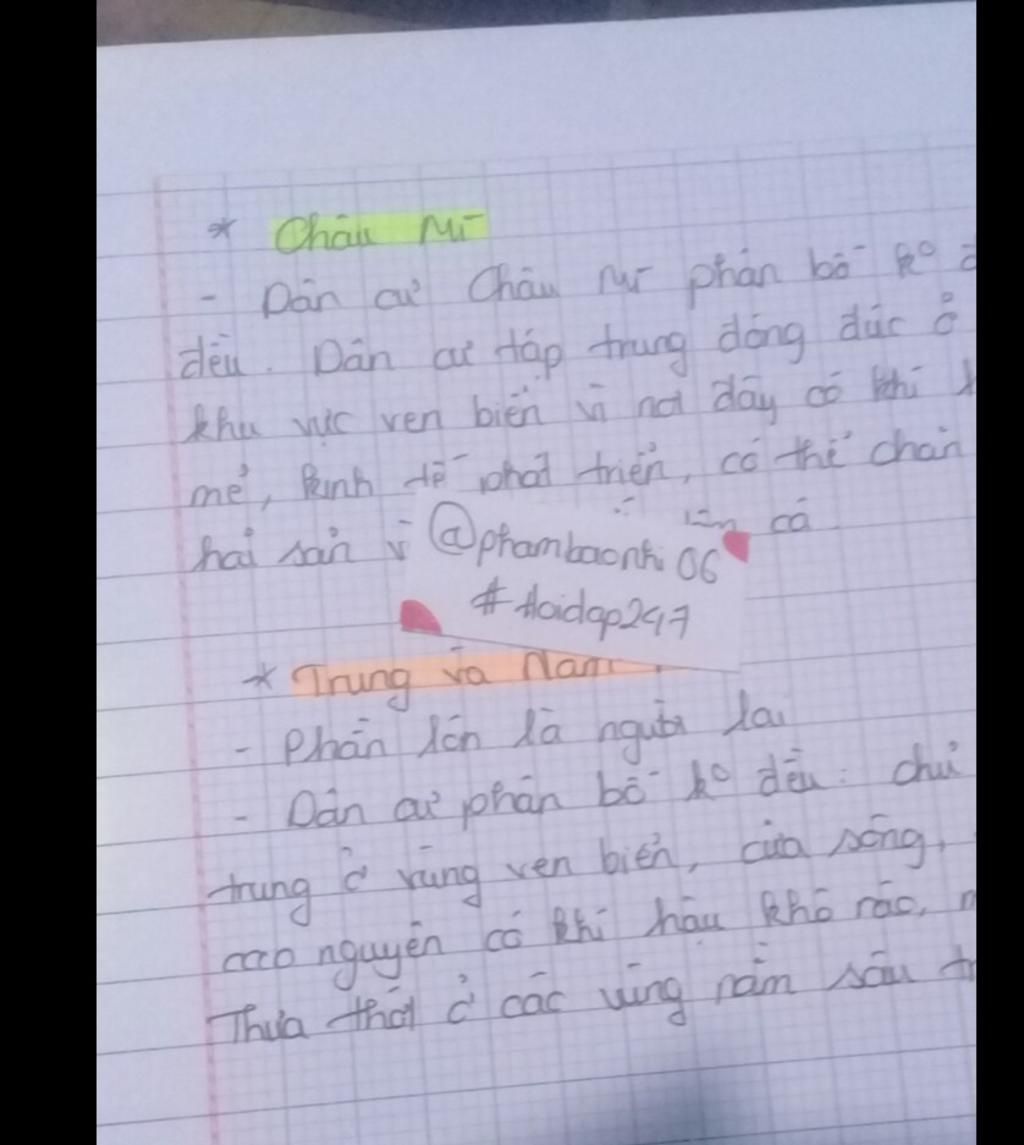 * Châu Mĩ
- Dân cư Châu Mĩ phân bố ko
đều. Dân cư tập trung đông đúc ở
khu vực ven biển vì nơi đây có khí
mẻ, kinh tế phát triển, có thể
hải sản
@phambaonhi06
#Hoidap247
* Trung và Nam
- Phần lớn là người lai
- Dân cư phân bố ko đều: chủ
trung ở vùng ven biển, cửa sông,
cao nguyên có khí hậu khô ráo,
Thưa thớt ở các vùng nằm sâu